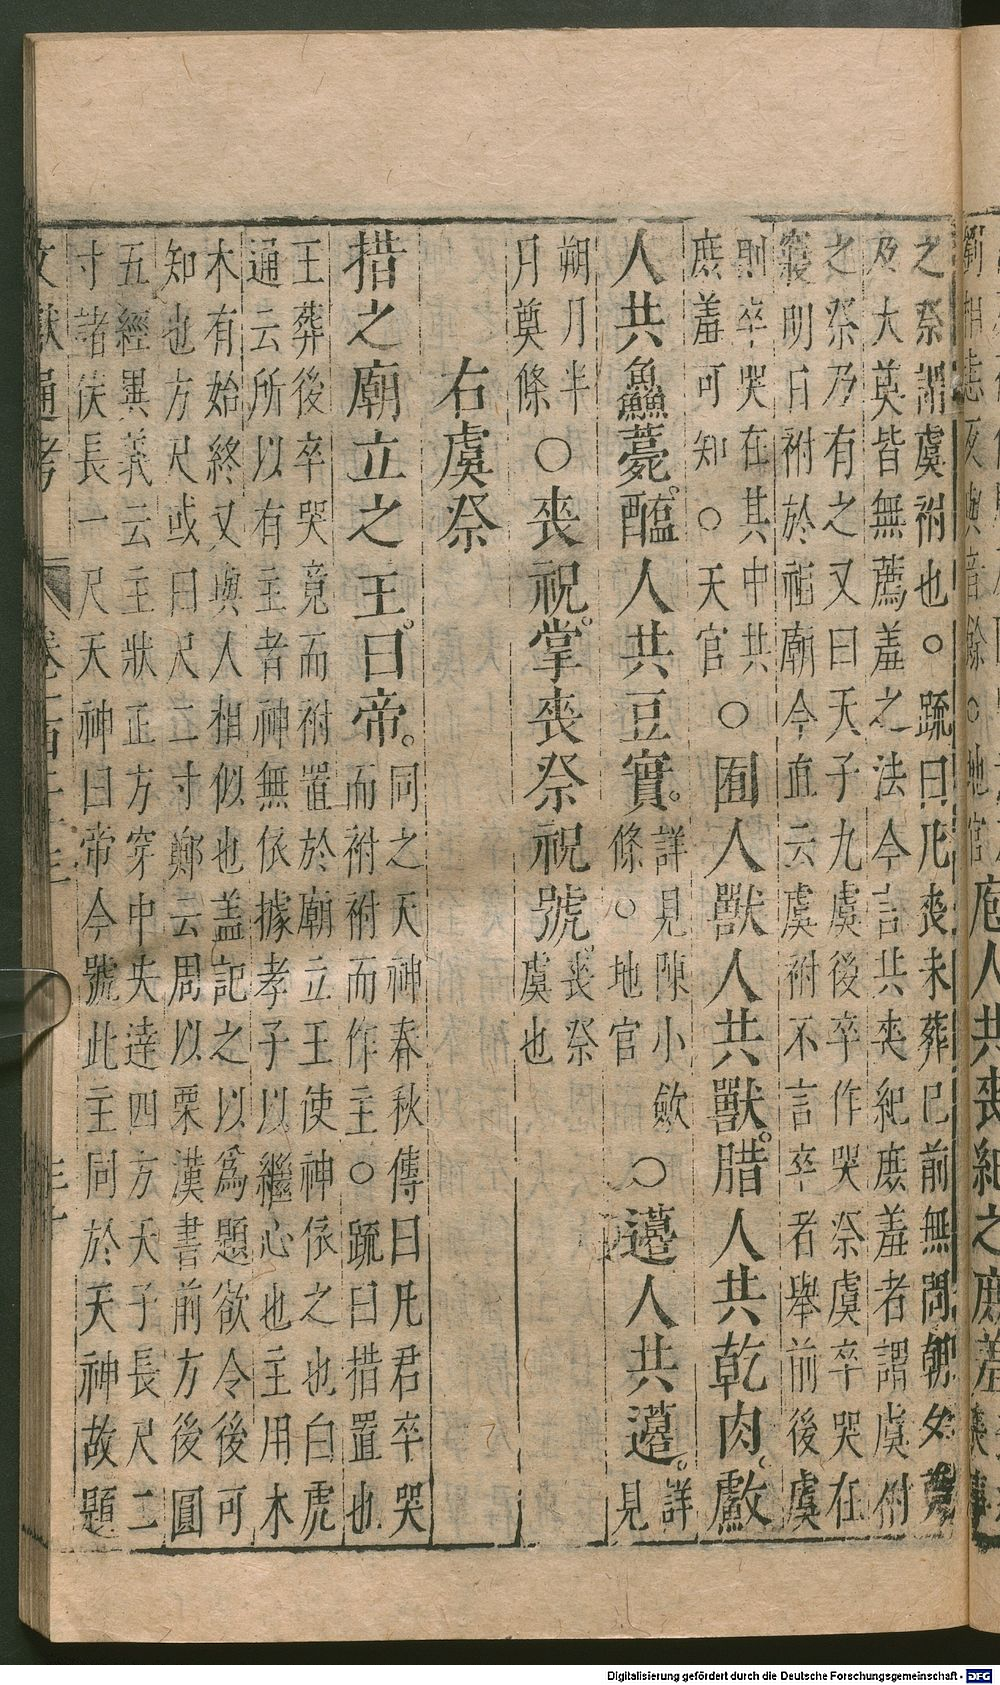 庖人共喪紀之庶羞
之祭謂虞祔也○疏曰凡喪未葬已前無問朝夕奠
及大奠皆無薦羞之法今言共喪紀庶羞者謂虞祔
之祭乃有之又曰天子九虞後卒作哭祭虞卒哭在
寢明日祔於祖廟今直云虞祔不言卒者舉前後虞
則卒哭在其中共
庶羞可知○天官
○囿人獸人共獸。腊人共乾肉、䱷
人共鱻薧。醢人共豆實。
詳見陳小斂
條○地官
○籩人共籩。
詳
見
朔月半
月奠條
○喪祝。掌喪祭祝號。
喪祭
虞也
右虞祭
措之廟立之主。曰帝。
同之天神春秋傳曰凡君卒哭
而祔祔而作主○疏曰措置也
王葬後卒哭竟而祔置於廟立主使神依之也白虎
通云所以有主者神無依據孝子以繼心也主用木
木有始終又與人相似也蓋記之以爲題欲令後可
知也方尺或曰尺二寸鄭云周以栗漢書前方後圓
五經異義云主狀正方穿中央達四方天子長尺二
寸諸侯長一尺天神曰帝今號此主同於天神故題
文獻通考
Digitalisierung gefördert durch die Deutsche Forschungsgemeinschaft - DFG